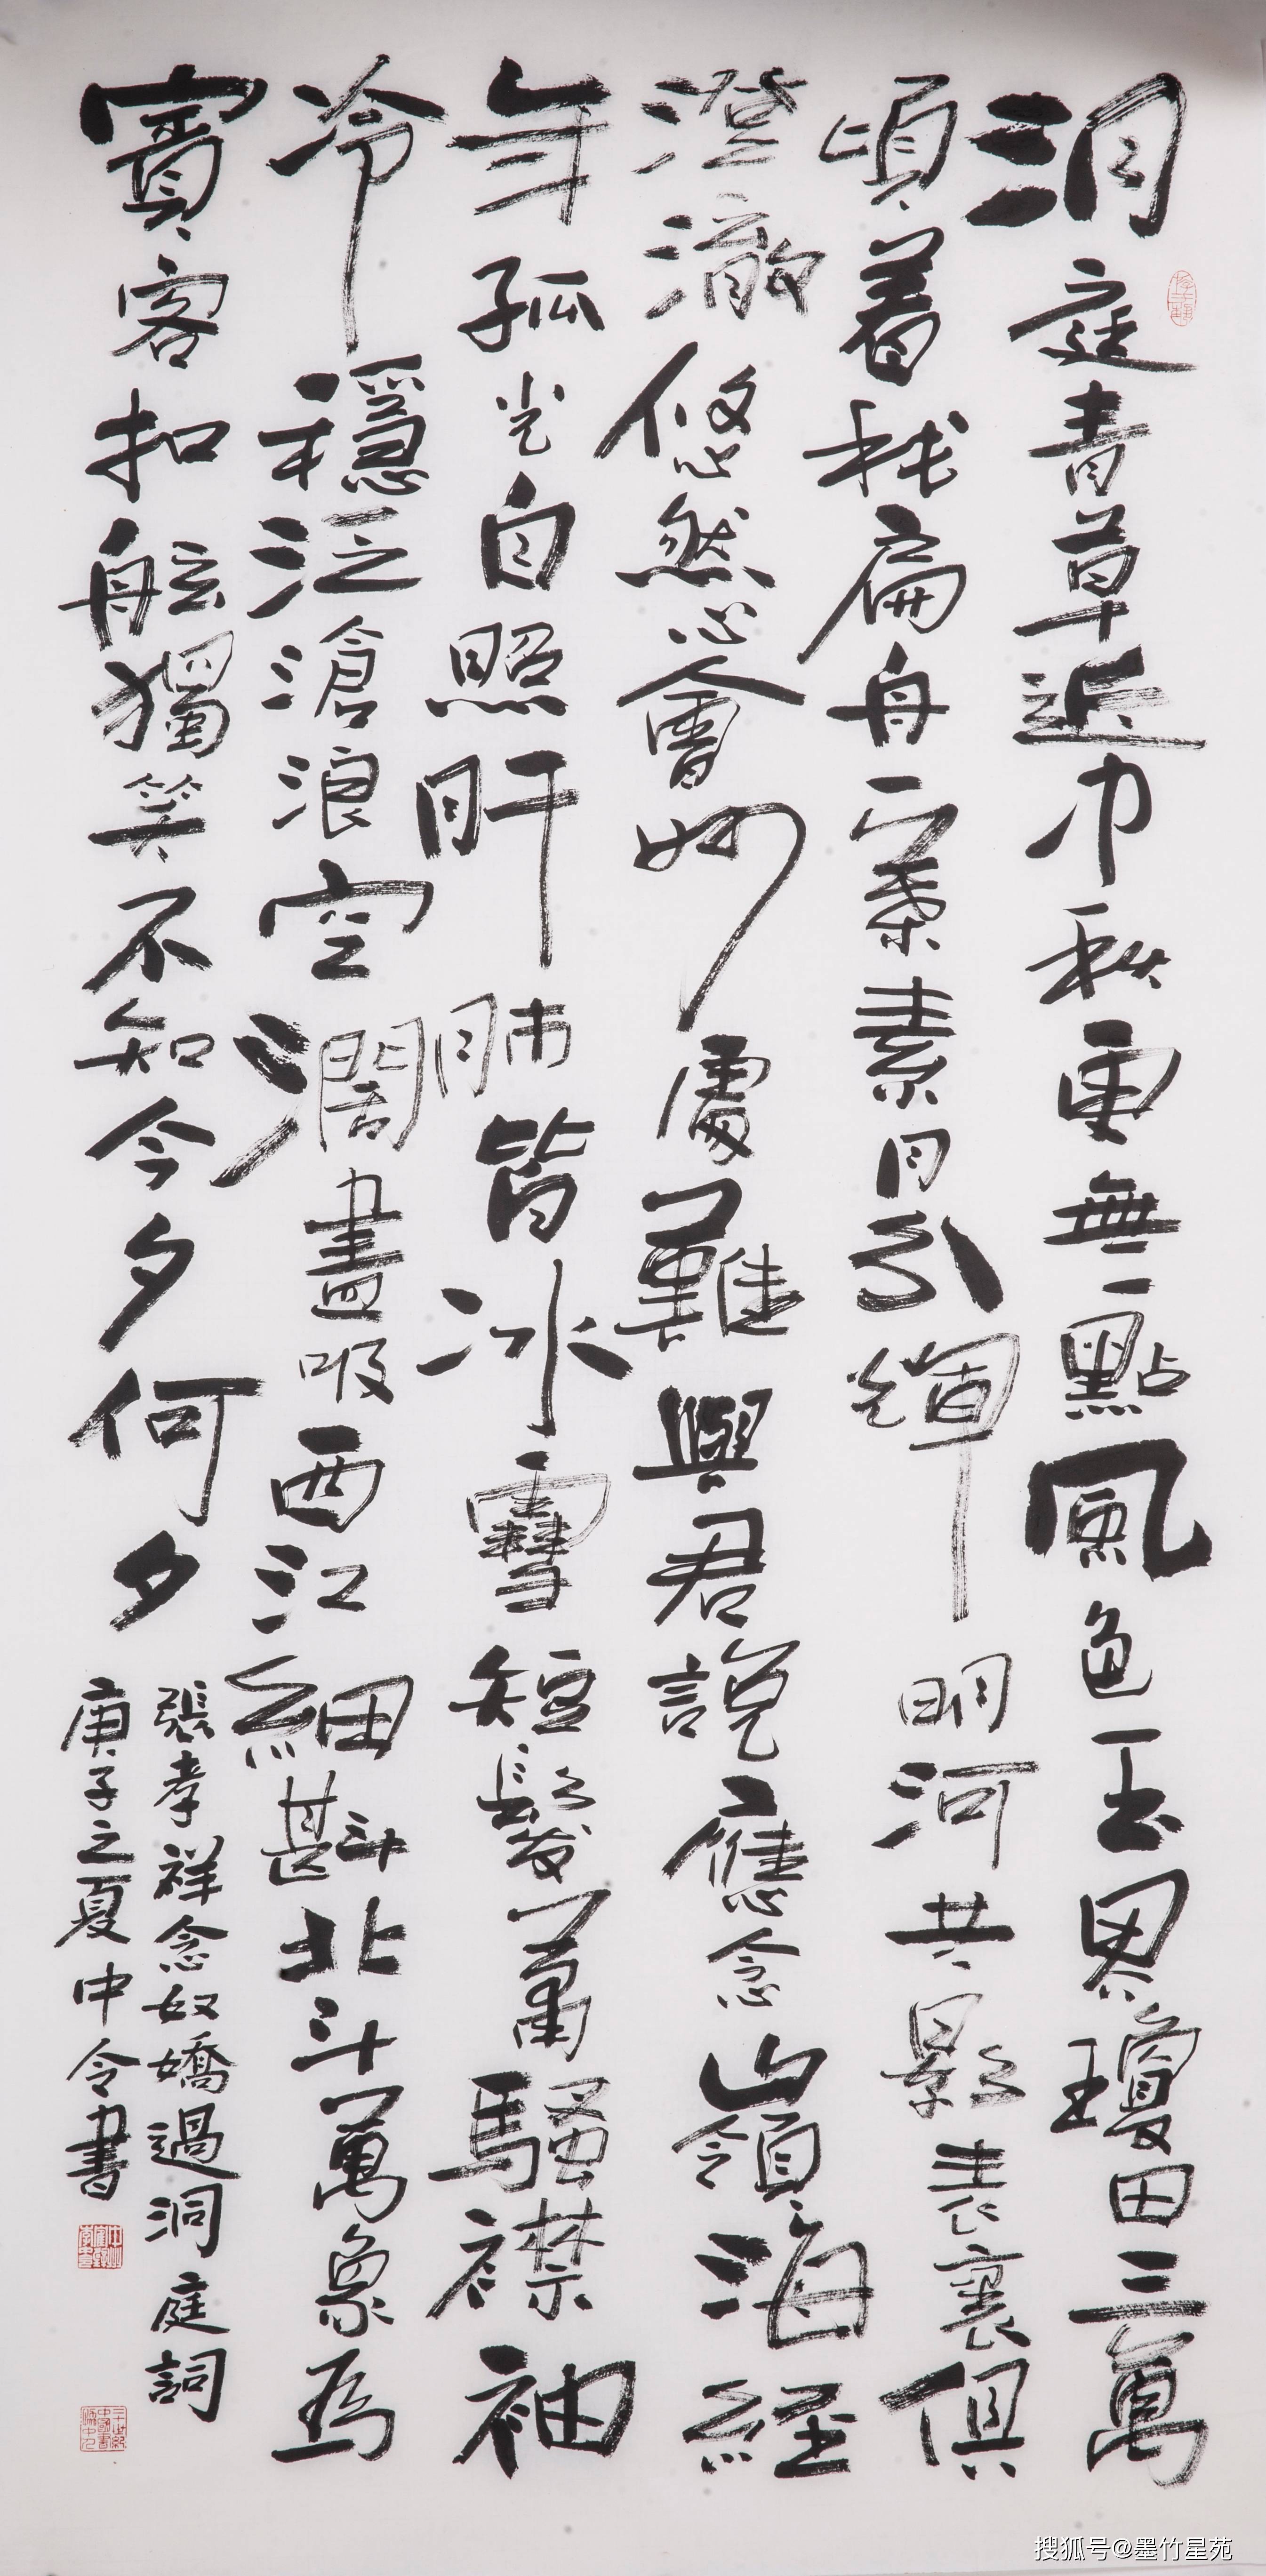 洞庭青草近中秋更無一點風色玉界瓊田三萬
頃着我扁舟一葉素月分輝明河共影表裏俱
澄澈悠然心會妙處難與君說應念嶺海經
年孤光自照肝肺皆冰雪短髮蕭騷襟袖
冷穩泛滄浪空濶盡吸西江細斟北斗萬象為
賓客扣舷獨笑不知今夕何夕
張孝祥念奴嬌過洞庭詞
庚子之夏中令書
搜狐号@墨竹星苑